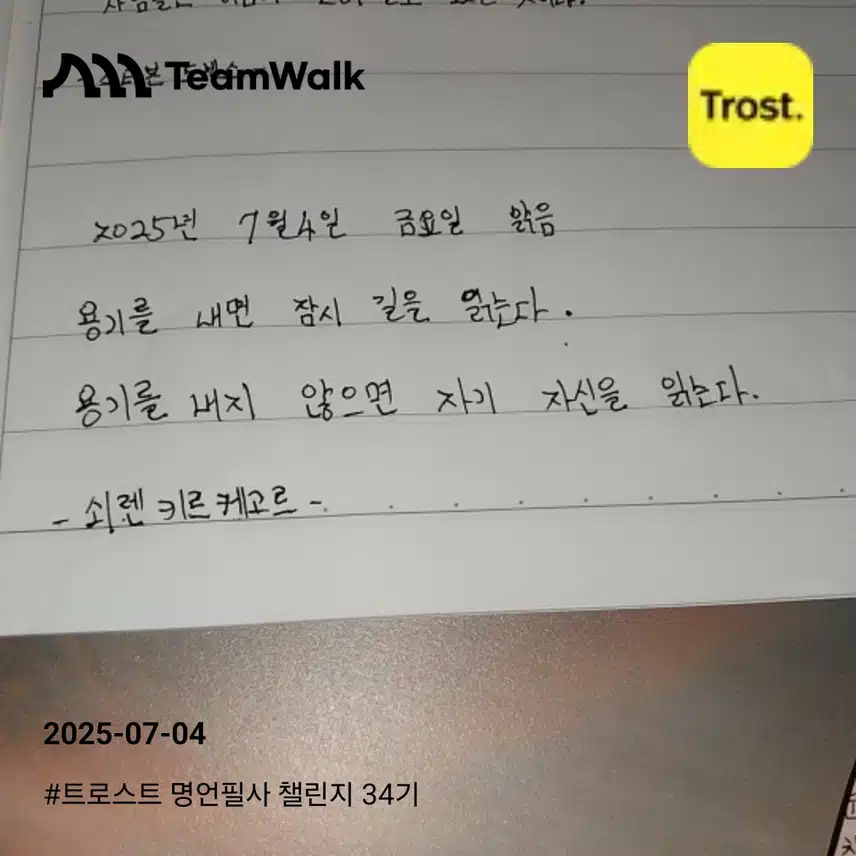 TeamWalk
Trost.
2025년 7월 4일 금요일 맑음
용기를 내면 잠시 길을 잃는다.
용기를 내지 않으면 자기 자신을 잃는다.
- 쇠렌 키르케고르 -
2025-07-04
#트로스트 명언필사 챌린지 34기